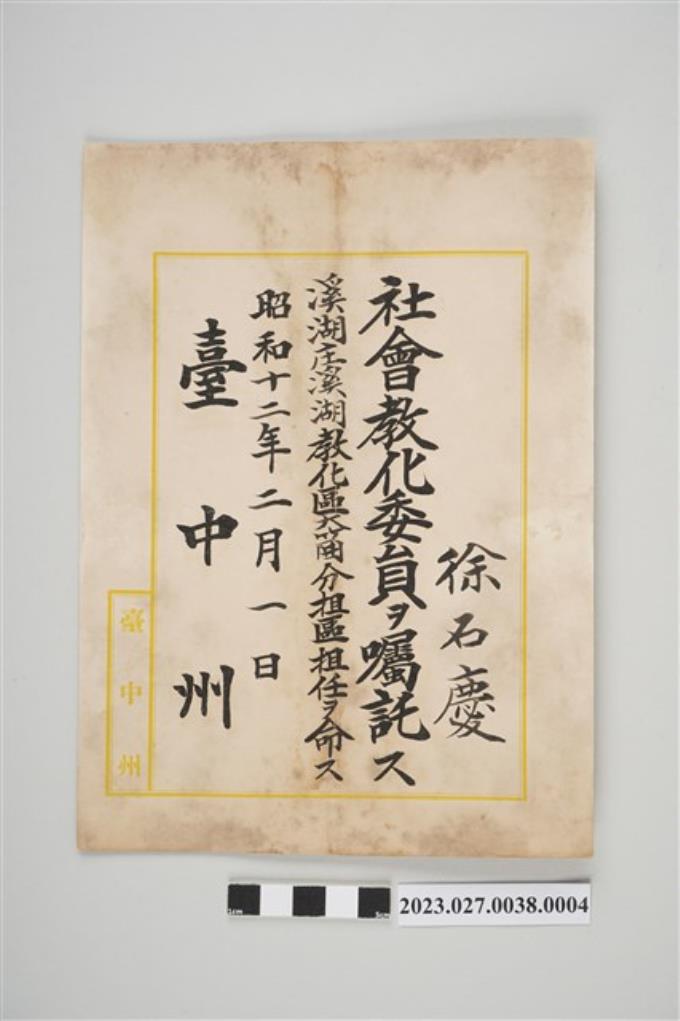 徐石慶
社會教化委員ヲ囑託ス
溪湖庄溪湖教化區大莆分担區担任ヲ命ス
昭和十二年二月一日
臺中州
臺中州
1cm
5cm
2023.027.0038.0004